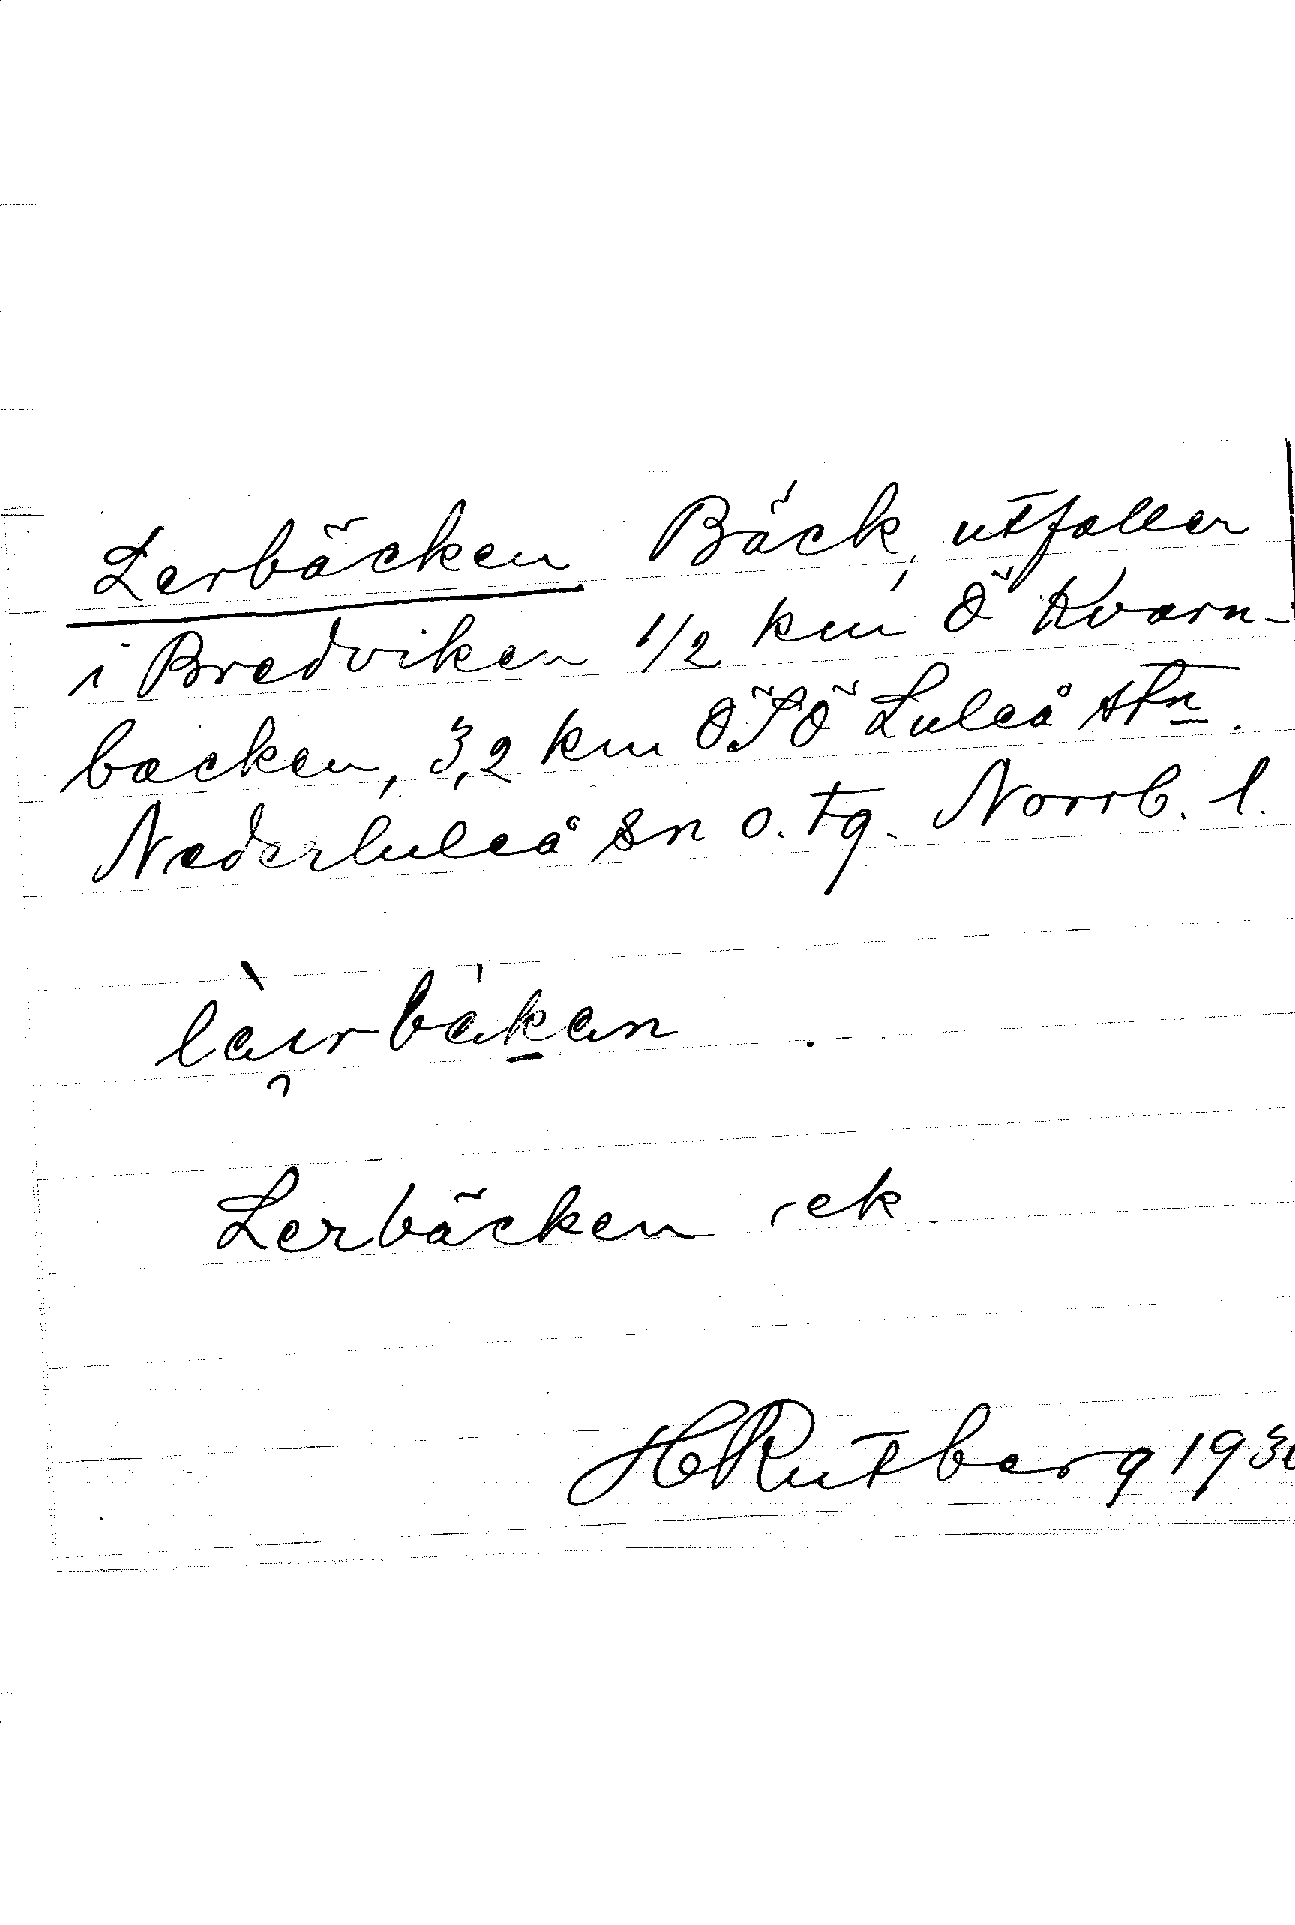 Lerbäcken Bäck, utfaller
i Bredviken 1/2 km Ö Kvarn-
backen, 3,2 km ÖSÖ Luleå stn.
Nederluleå sn o. tg. Norrb. l.
Lerbäcken ek
HRutberg